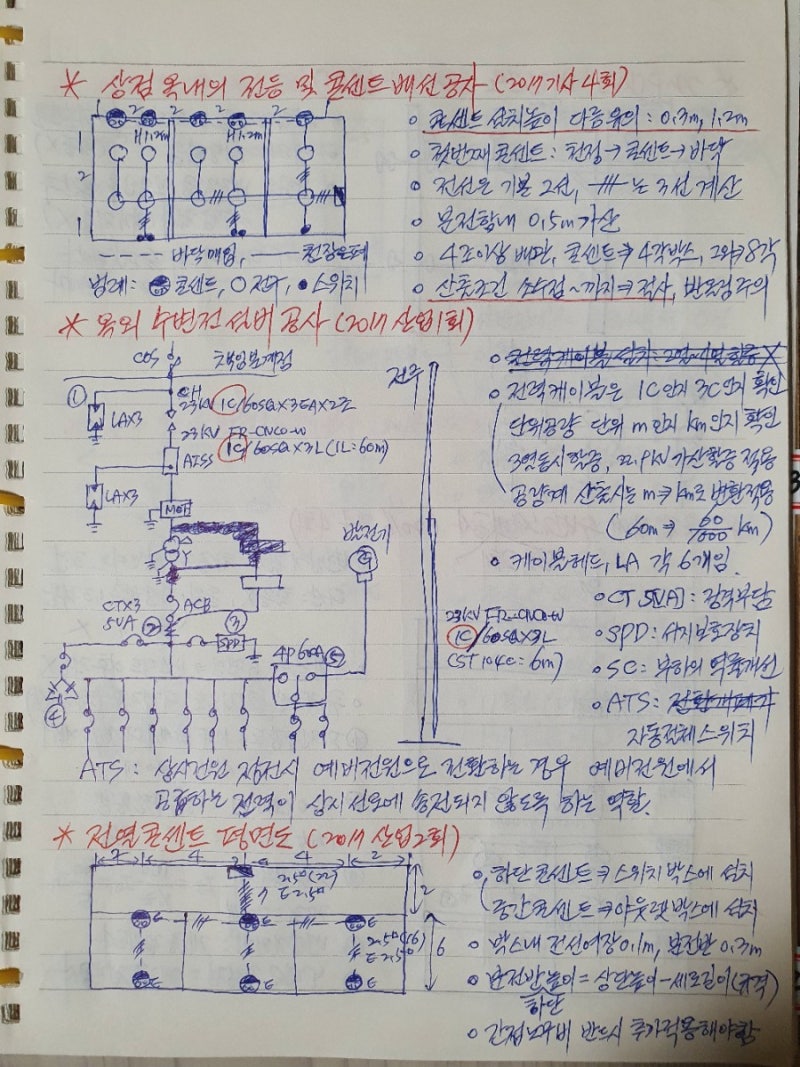 * 상점 옥내의 전등 및 콘센트 배선 공사 (2017 기사 4회)
2 2 2
H1.2m H1.2m
1
2
1
---- 바닥매입, —— 천장은폐
범례: 콘센트, ○전등, ●스위치
○ 콘센트 설치높이 다름유의 : 0.3m, 1.2m
○ 첫번째 콘센트 : 천장→콘센트→바닥
○ 전선은 기본 2선, -///-는 3선 계산
○ 분전함내 0.5m 가산
○ 4조이상 배관, 콘센트⇒4각박스, 그외⇒8각
○ 산출조건 소수점~까지⇒절사, 반올림주의
* 옥외 수변전설비 공사 (2017 산업1회)
COS 책임분계점
① CH
23kV 1C/60SQ X 3EA X 2조
LA X3
23kV FR-CNCO-W
1C/60SQ X 3L (1L=60m)
AISS
LAX3
MOF
발전기
G
CTX3
5VA
ACB
② ③
SPD
4P 600A
⑤
④
전주
23kV FR-CNCO-W
1C/60SQ X 3L
(ST 104C : 6m)
○ 전력케이블 설치 : 2열~4열 할증 X
○ 전력케이블은 1C인지 3C인지 확인
단위공량 단위 m인지 km인지 확인
3열동시할증, 22.9kV 가산할증 적용
공량계 산출시는 m→km로 변환적용
(60m ⇒ 60/1000 km)
○ 케이블헤드, LA 각 6개임.
○ CT 5[VA] : 정격부담
○ SPD : 서지보호장치
○ SC : 부하의 역률개선
○ ATS : 전환개폐기
자동절체스위치
ATS : 상시전원 정전시 예비전원으로 전환하는 경우 예비전원에서
공급하는 전력이 상시선로에 송전되지 않도록 하는 역할.
* 전열콘센트 평면도 (2017 산업2회)
2 4 2 4 2
2.5□(22)
E2.5□
2
E E E
2.5□(16)
E2.5□
6
E E E
○ 하단 콘센트⇒스위치 박스에 설치
중간콘센트⇒아웃렛박스에 설치
○ 박스내 전선여장 0.1m, 분전반 0.3m
○ 분전반높이 = 상단높이 - 세로길이(규격)
하단
○ 간접노무비 반드시 추가적용해야함